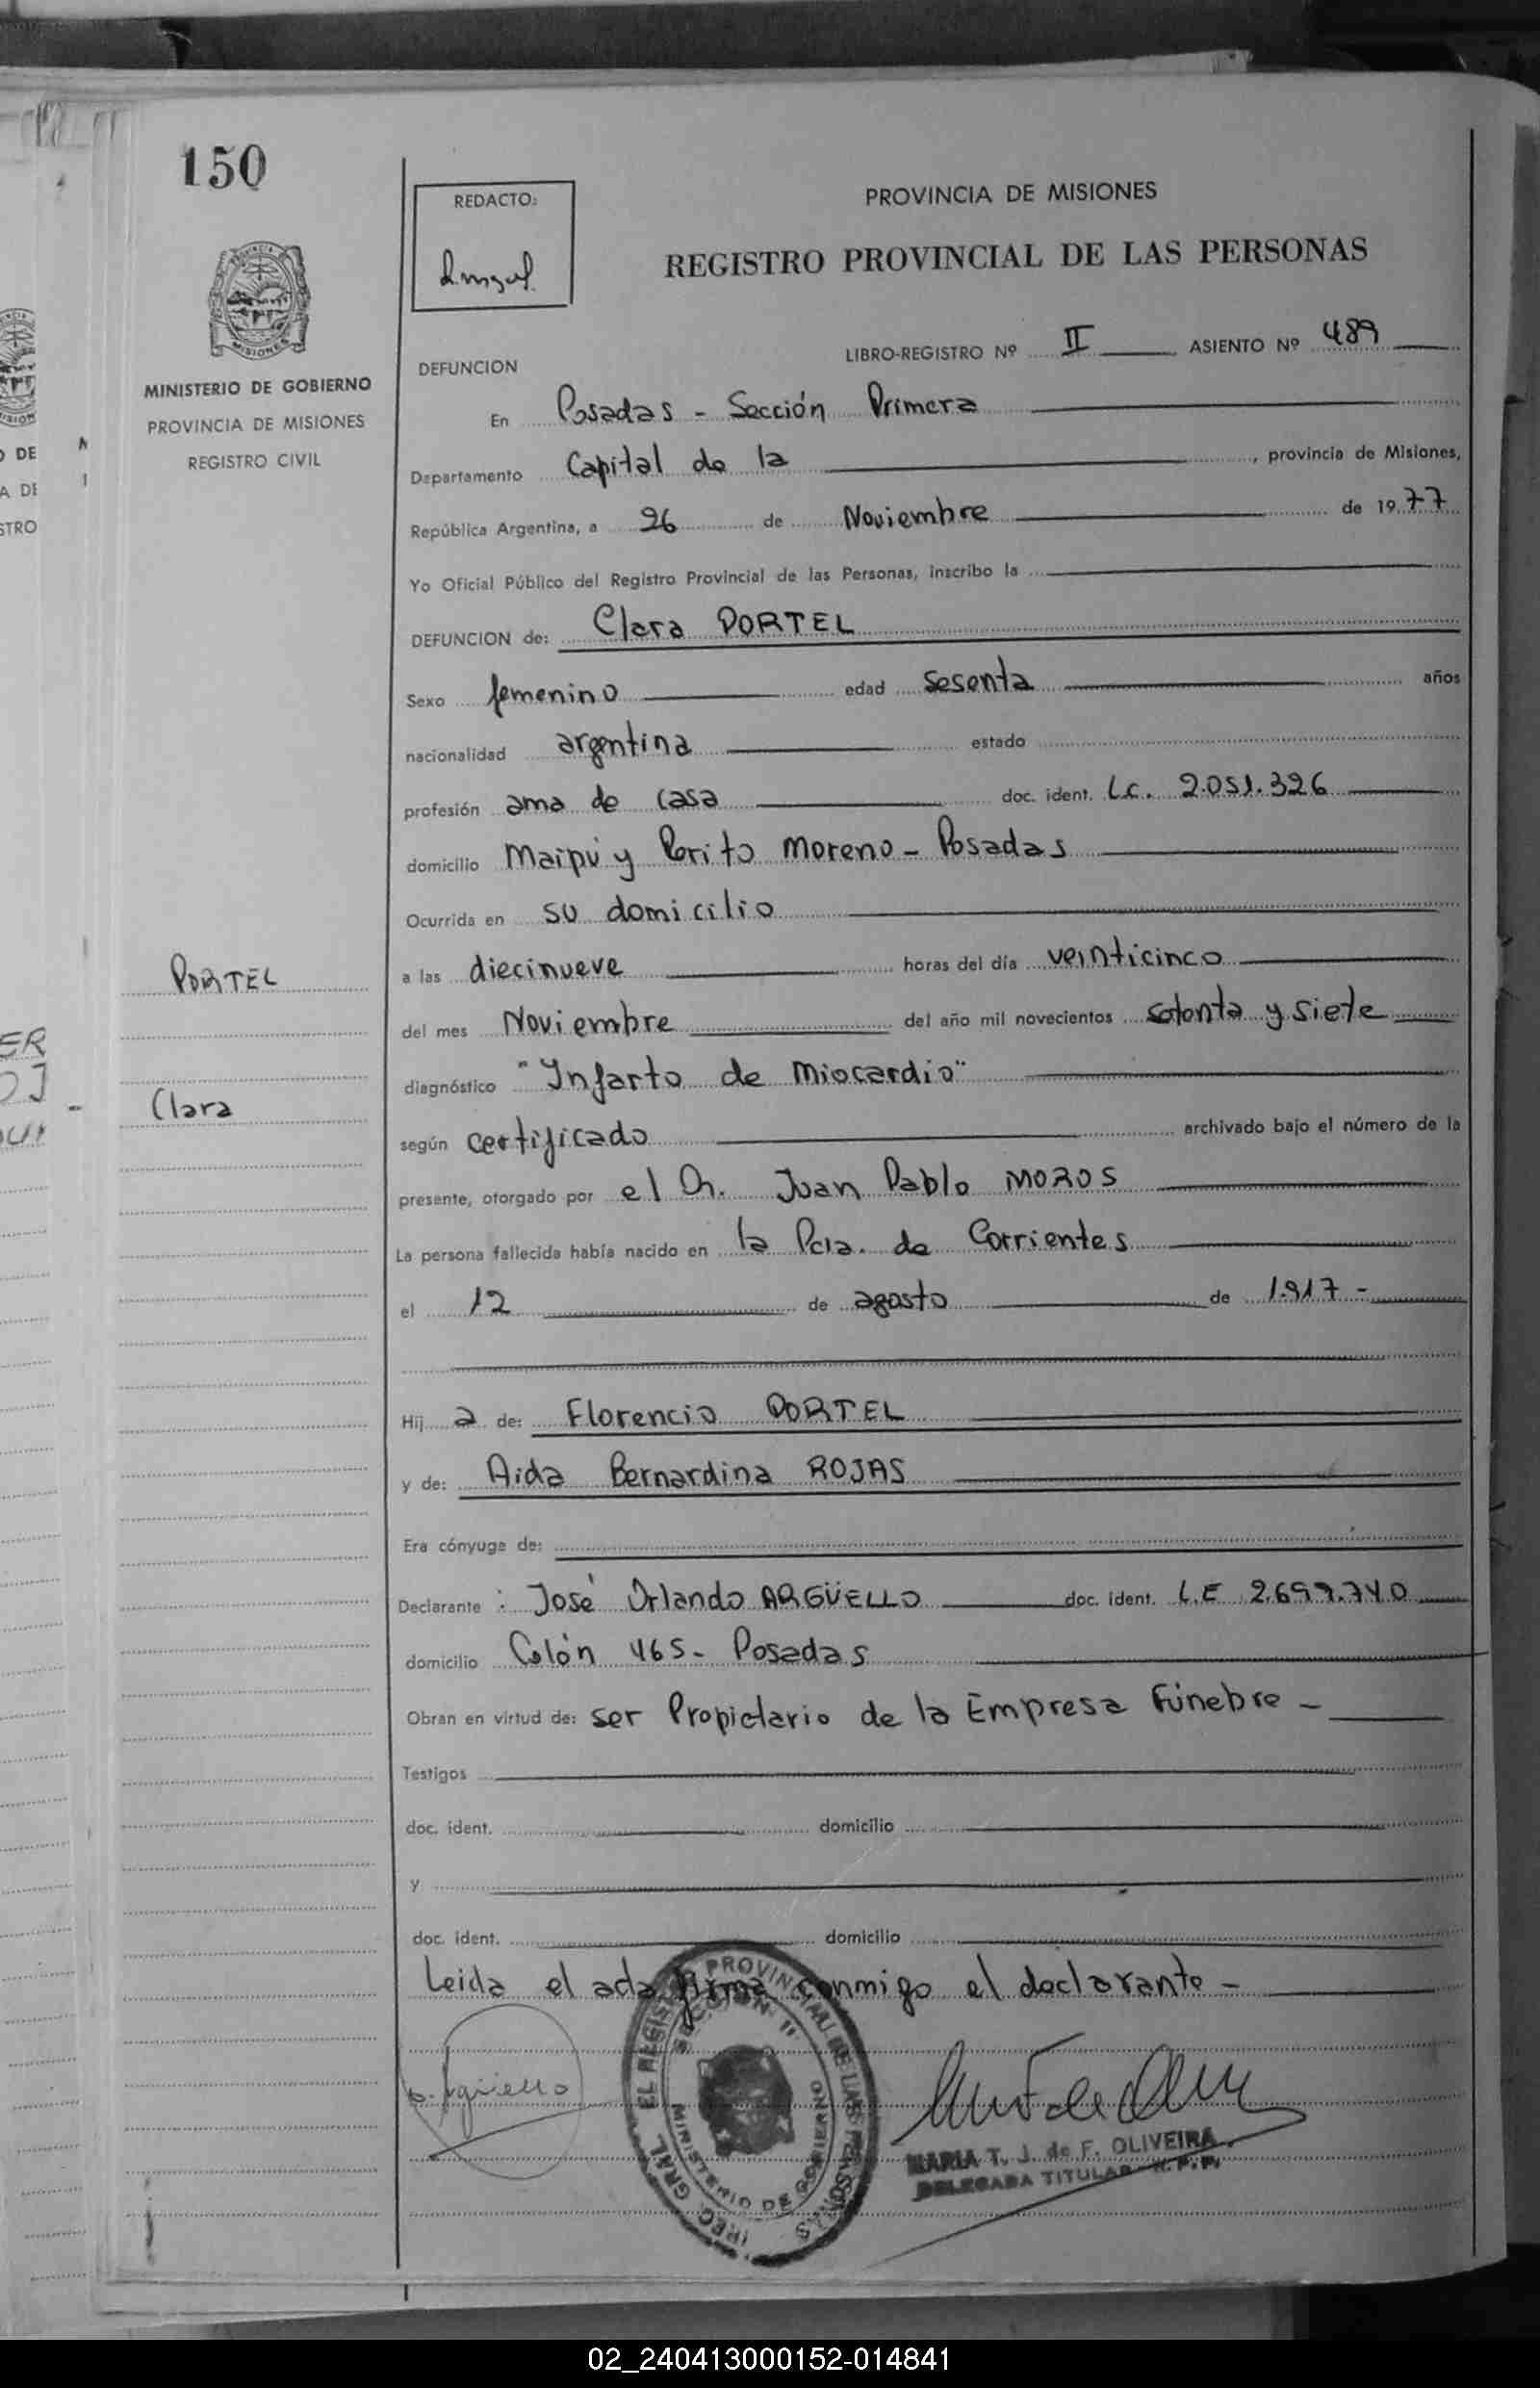 150
MINISTERIO DE GOBIERNO
PROVINCIA DE MISIONES
REGISTRO CIVIL
PORTEL
Clara
REDACTO:
PROVINCIA DE MISIONES
REGISTRO PROVINCIAL DE LAS PERSONAS
LIBRO-REGISTRO Nº II ASIENTO Nº 489
DEFUNCION
En Posadas - Sección Primera
Departamento Capital de la , provincia de Misiones,
República Argentina, a 26 de Noviembre de 1977
Yo Oficial Público del Registro Provincial de las Personas, inscribo la
DEFUNCION de: Clara PORTEL
Sexo femenino edad sesenta años
nacionalidad argentina estado
profesión ama de casa doc. ident. L.C. 2.051.326
domicilio Maipú y Perito Moreno - Posadas
Ocurrida en su domicilio
a las diecinueve horas del día veinticinco
del mes Noviembre del año mil novecientos setenta y siete
diagnóstico "Infarto de Miocardio"
según certificado archivado bajo el número de la
presente, otorgado por el Dr. Juan Pablo MOROS
La persona fallecida había nacido en la Pcia. de Corrientes
el 12 de agosto de 1.917 -
Hij a de: Florencio PORTEL
y de: Aida Bernardina ROJAS
Era cónyuge de:
Declarante : José Orlando ARGÜELLO doc. ident. L.E 2.699.740
domicilio Colón 465 - Posadas
Obran en virtud de: ser Propietario de la Empresa Fúnebre -
Testigos
doc. ident. domicilio
y
doc. ident. domicilio
Leida el acta firma conmigo el declarante -
MINISTERIO DE GOBIERNO
MARIA T. J. de F. OLIVEIRA
DELEGADA TITULAR R. P. P.
02_240413000152-014841